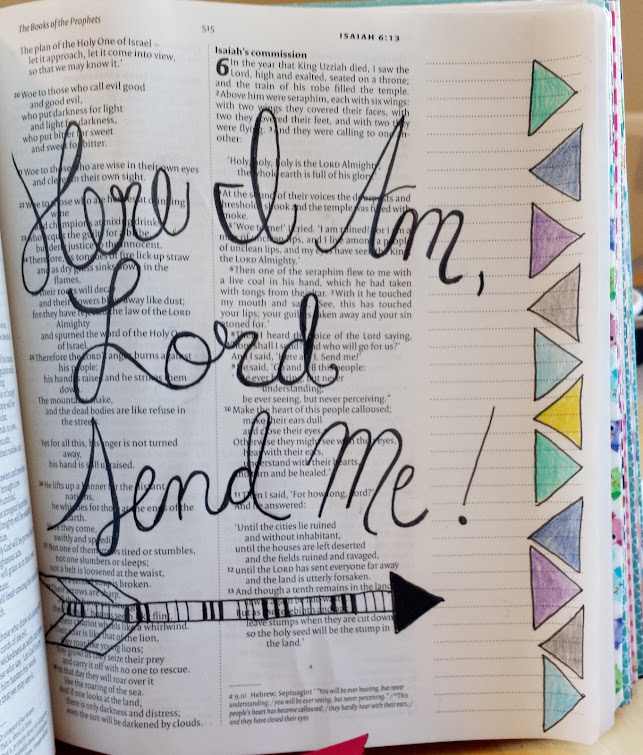 The Books of the Prophets
515
ISAIAH 6:13
Here I Am,
Lord
send Me!
The plan of the Holy One of Israel –
let it approach, let it come into view,
so that we may know it.'
20 Woe to those who call evil good
and good evil,
who put darkness for light
and light for darkness,
who put bitter for sweet
and sweet for bitter.
21 Woe to those who are wise in their own eyes
and clever in their own sight.
innocent.
lick up straw
and as dry sinks in the
flames,
their roots will decay
and their flowers blow away like dust;
for they have the law of the LORD
Almighty
and spurned the word of the Holy One
of Israel.
25 Therefore the LORD's anger burns against
his people;
his hand is raised and he strikes them
down.
The mountains shake,
and the dead bodies are like refuse in
the streets.
Yet for all this, his anger is not turned
away,
his hand is still upraised.
26 He lifts up a banner for the distant
nations,
he whistles for those at the ends of the
earth.
they come,
swiftly and speedily!
27 Not one of them tires or stumbles,
not one slumbers or sleeps;
not a belt is loosened at the waist,
is broken.
Their arrows are sharp,
like a whirlwind.
29 Their roar is like that of the lion,
they roar like young lions;
they growl as they seize their prey
and carry it off with no one to rescue.
30 In that day they will roar over it
like the roaring of the sea.
And if one looks at the land,
there is only darkness and distress;
even the sun will be darkened by clouds.
Isaiah's commission
6 In the year that King Uzziah died, I saw the
Lord, high and exalted, seated on a throne;
and the train of his robe filled the temple.
2 Above him were seraphim, each with six wings:
with two wings they covered their faces, with
two they covered their feet, and with two they
were flying. 3 And they were calling to one an-
other:
'Holy, holy, holy is the LORD Almighty;
the whole earth is full of his glory.'
4 At the sound of their voices the doorposts and
thresholds shook and the temple was filled with
smoke.
5 'Woe to me!' I cried. 'I am ruined! For I
of unclean lips, and my eyes have seen the King,
the LORD Almighty.'
6 Then one of the seraphim flew to me with
a live coal in his hand, which he had taken
with tongs from the altar. 7 With it he touched
my mouth and said, 'See, this has touched
your lips; your guilt is taken away and your sin
atoned for.'
8 Then I heard the voice of the Lord saying,
'Whom shall I send? And who will go for us?'
And I said, 'Here am I. Send me!'
9 He said, 'Go and tell this people:
understanding;
be ever seeing, but never perceiving."
10 Make the heart of this people calloused;
make their ears dull
and close their eyes.
Otherwise they might see with their eyes,
hear with their ears,
understand with their hearts,
and turn and be healed.'
11 Then I said, 'For how long, Lord?'
And he answered:
'Until the cities lie ruined
and without inhabitant,
until the houses are left deserted
and the fields ruined and ravaged,
12 until the LORD has sent everyone far away
and the land is utterly forsaken.
13 And though a tenth remains in the land,
leave stumps when they are cut down,
so the holy seed will be the stump in
the land.'
a 9,10 Hebrew; Septuagint 'You will be ever hearing, but never
understanding; / you will be ever seeing, but never perceiving.' / 10This
people's heart has become calloused; / they hardly hear with their ears,
and they have closed their eyes